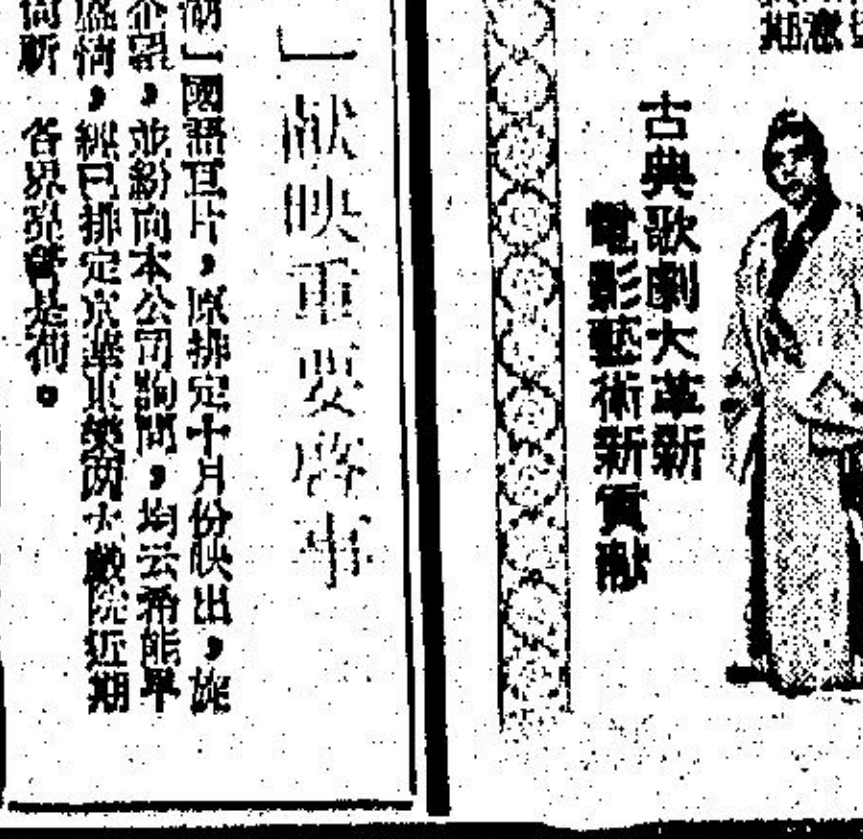 期意
古典歌劇大革新
電影藝術新貢献
」献映重要啓事
湖」國語巨片，原排定十月份映出，旋
企望，並紛向本公司詢問，均云希能早
盛情，經已排定京華東樂两大戲院近期
何斯　各界　是荷。